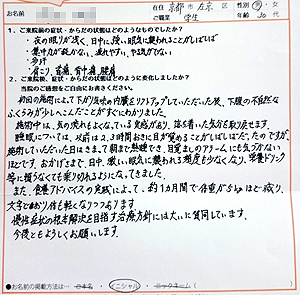 お名前
在住 京都市 左京区
ご職業 学生
性別 男・女
年代 20代
1. ご来院前の症状・からだの状態はどのようなものでしたか?
・夜の眠りが浅く、日中に強い眠気に襲われることがしばしば
・集中力が続かない、疲れやすい、やる気がでない
・歩行
・肩こり、首痛、背中痛、腰痛
2. ご来院後、症状・からだの状態はどのように変化しましたか?
当院のご感想をご自由にお書きください。
初回の施術によって下がり気味の内臓をリフトアップしていただいた後、下腹の不自然な
ふくらみが少しへこんだことがすぐにわかりました。
施術中は、気の流れがよくなっている実感があり、落ち着いた気分を取り戻せます。
睡眠については、以前は2、3時間おきに目が覚めることがしばしばだったのですが、
施術していただいた日はきまって朝まで熟睡でき、目覚ましのアラームにも気づかない
ほどです。おかげさまで、日中、激しい眠気に襲われる頻度も少なくなり、栄養ドリンク
等に頼らなくても乗り切れるようになってきました。
また、食養アドバイスの実践によって、約1カ月間で体重が5kgほど減り、
文字どおり体も軽くなりつつあります
慢性症状の根本解決を目指す治療方針には大いに賛同しています。
今後ともよろしくお願いします。
●お名前の掲載方法は… ・本名 ・イニシャル ・ニックネーム(